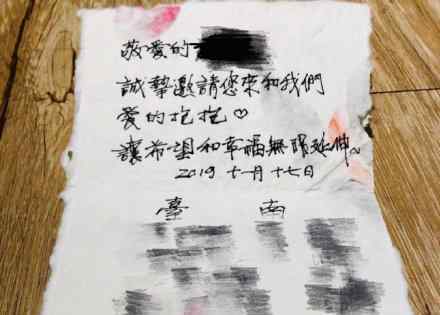 敬愛的
誠摯邀請您來和我們
愛的抱抱♡
讓希望和幸福無限延伸~
2019 十一月 十七日
臺 南